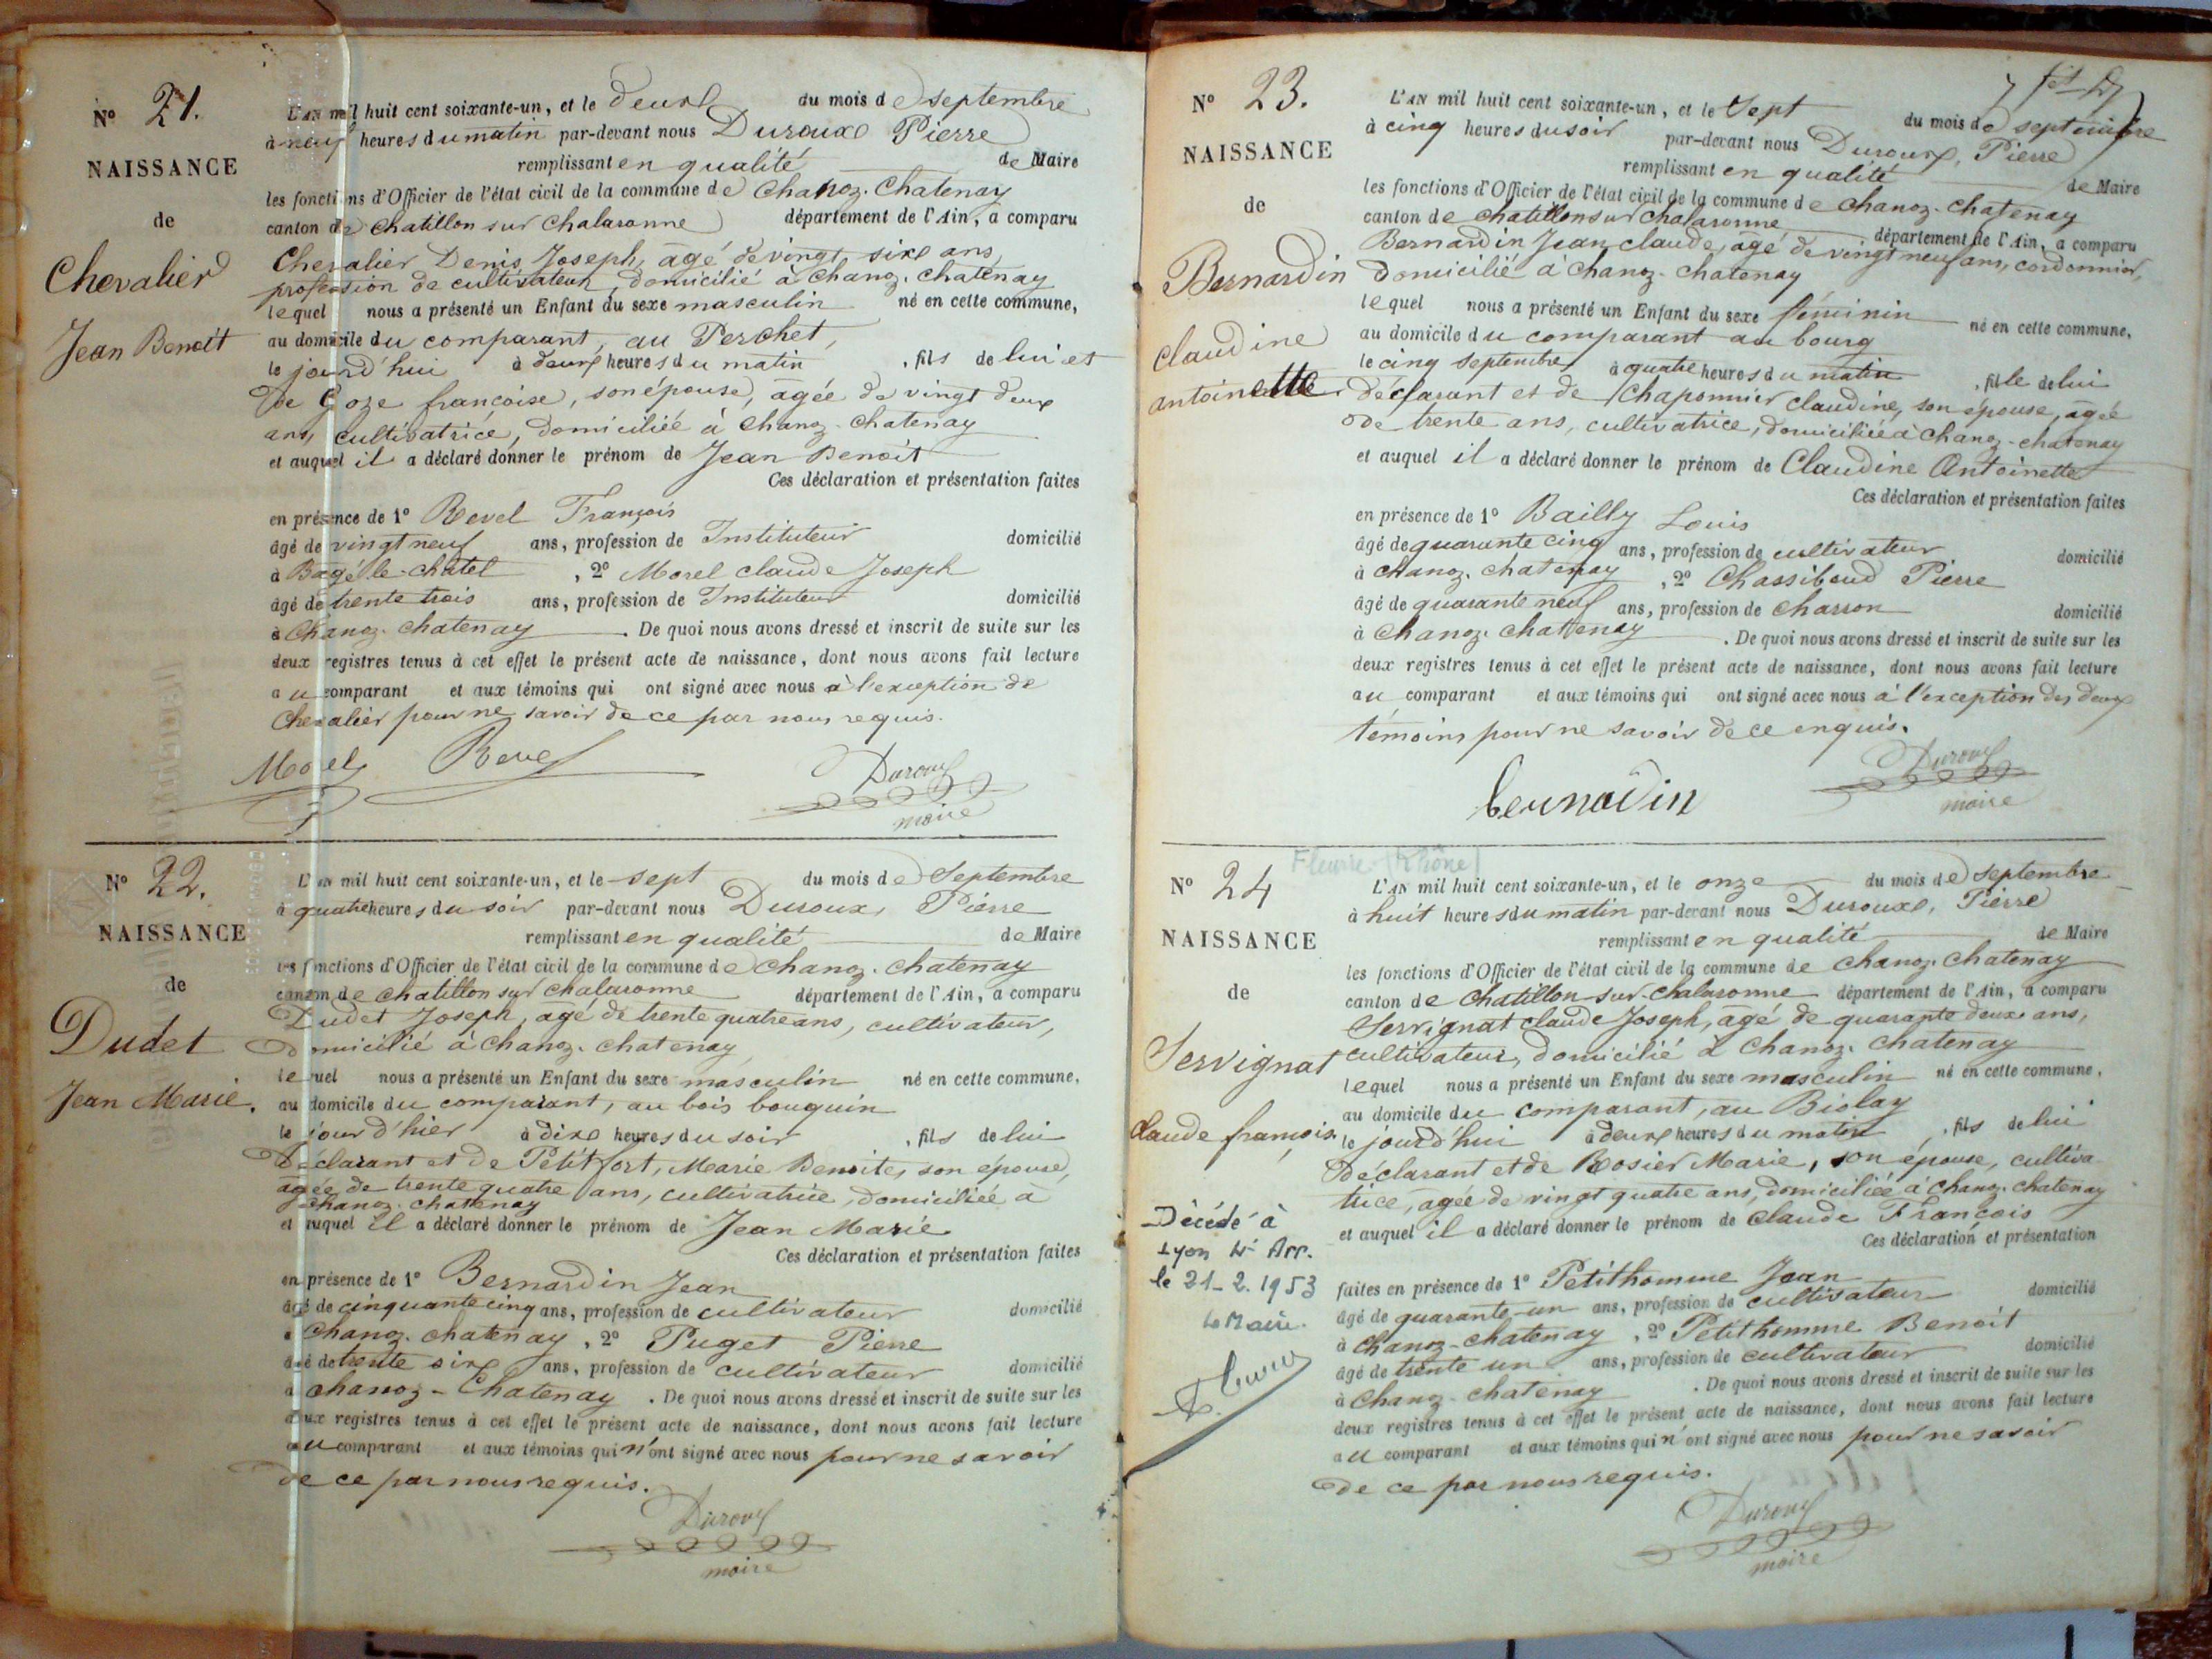 N° 21.
NAISSANCE
de
Chevalier
Jean Benoît
L'AN mil huit cent soixante-un, et le deux du mois de septembre
à neuf heures du matin par-devant nous Duroux Pierre
remplissant en qualité de Maire
les fonctions d'Officier de l'état civil de la commune de Chanoz-Chatenay
canton de Chatillon sur Chalaronne département de l'Ain, a comparu
Chevalier Denis Joseph, agé de vingt six ans,
profession de cultivateur, domicilié à Chanoz-Chatenay
lequel nous a présenté un Enfant du sexe masculin né en cette commune,
au domicile du comparant, au Perchet,
le jourd'hui à deux heures du matin , fils de lui et
de Goze françoise, son épouse, agée de vingt deux
ans, cultivatrice, domiciliée à Chanoz-Chatenay
et auquel il a déclaré donner le prénom de Jean Benoît
Ces déclaration et présentation faites
en présence de 1° Revel François
âgé de vingt neuf ans, profession de Instituteur domicilié
à Bagé-le-Châtel , 2° Morel Claude Joseph
âgé de trente trois ans, profession de Instituteur domicilié
à Chanoz-Chatenay . De quoi nous avons dressé et inscrit de suite sur les
deux registres tenus à cet effet le présent acte de naissance, dont nous avons fait lecture
au comparant et aux témoins qui ont signé avec nous à l'exception de
Chevalier pour ne savoir de ce par nous requis.
Morel Revel Duroux
maire
N° 22.
NAISSANCE
de
Dudet
Jean Marie.
L'AN mil huit cent soixante-un, et le sept du mois de Septembre
à quatre heures du soir par-devant nous Duroux, Pierre
remplissant en qualité de Maire
les fonctions d'Officier de l'état civil de la commune de Chanoz-Chatenay
canton de Chatillon sur Chalaronne département de l'Ain, a comparu
Dudet Joseph, agé de trente quatre ans, cultivateur,
domicilié à Chanoz-Chatenay
lequel nous a présenté un Enfant du sexe masculin né en cette commune,
au domicile du comparant, au bois bouquin
le jour d'hier à dix heures du soir , fils de lui
Déclarant et de Petitfort, Marie Benoite, son épouse,
agée de trente quatre ans, cultivatrice, domiciliée à
Chanoz-Chatenay
et auquel il a déclaré donner le prénom de Jean Marie
Ces déclaration et présentation faites
en présence de 1° Bernardin Jean
âgé de cinquante cinq ans, profession de cultivateur domicilié
à Chanoz-Chatenay, 2° Puget Pierre
âgé de trente six ans, profession de cultivateur domicilié
à Chanoz-Chatenay . De quoi nous avons dressé et inscrit de suite sur les
deux registres tenus à cet effet le présent acte de naissance, dont nous avons fait lecture
au comparant et aux témoins qui n'ont signé avec nous pour ne savoir
de ce par nous requis.
Duroux
maire
N° 23.
NAISSANCE
de
Bernardin
Claudine
antoinette
L'AN mil huit cent soixante-un, et le Sept du mois de septembre
à cinq heures du soir par-devant nous Duroux, Pierre
remplissant en qualité de Maire
les fonctions d'Officier de l'état civil de la commune de Chanoz-Chatenay
canton de Chatillon sur Chalaronne département de l'Ain, a comparu
Bernardin Jean claude, agé de vingt neuf ans, cordonnier,
domicilié à Chanoz-Chatenay
lequel nous a présenté un Enfant du sexe féminin né en cette commune,
au domicile du comparant au bourg
le cinq septembre à quatre heures du matin , fille de lui
déclarant et de Chaponnier Claudine, son épouse, agée
de trente ans, cultivatrice, domiciliée à Chanoz-Chatenay
et auquel il a déclaré donner le prénom de Claudine Antoinette
Ces déclaration et présentation faites
en présence de 1° Bailly Louis
âgé de quarante cinq ans, profession de cultivateur domicilié
à Chanoz-Chatenay , 2° Chassiboud Pierre
âgé de quarante neuf ans, profession de charron domicilié
à Chanoz-Chatenay . De quoi nous avons dressé et inscrit de suite sur les
deux registres tenus à cet effet le présent acte de naissance, dont nous avons fait lecture
au comparant et aux témoins qui ont signé avec nous à l'exception des deux
témoins pour ne savoir de ce enquis.
bernadin Duroux
maire
Fleurie (Rhône)
N° 24
NAISSANCE
de
Servignat
Claude françois.
Décédé à
Lyon 4e Arr.
le 21-2.1953
Le Maire.
L'AN mil huit cent soixante-un, et le onze du mois de septembre
à huit heures du matin par-devant nous Duroux, Pierre
remplissant en qualité de Maire
les fonctions d'Officier de l'état civil de la commune de Chanoz-Chatenay
canton de Chatillon-sur-Chalaronne département de l'Ain, a comparu
Servignat Claude Joseph, agé de quarante deux ans,
cultivateur, domicilié à Chanoz-Chatenay
lequel nous a présenté un Enfant du sexe masculin né en cette commune,
au domicile du comparant, au Biolay
le jourd'hui à deux heures du matin , fils de lui
Déclarant et de Rosier Marie, son épouse, cultiva
trice, agée de vingt quatre ans, domiciliée à Chanoz-Chatenay
et auquel il a déclaré donner le prénom de Claude François
Ces déclaration et présentation
faites en présence de 1° Petithomme Jean
âgé de quarante-un ans, profession de cultivateur domicilié
à Chanoz-Chatenay , 2° Petithomme Benoit
âgé de trente un ans, profession de cultivateur domicilié
à Chanoz-Chatenay . De quoi nous avons dressé et inscrit de suite sur les
deux registres tenus à cet effet le présent acte de naissance, dont nous avons fait lecture
au comparant et aux témoins qui n'ont signé avec nous pour ne savoir
de ce par nous requis.
Duroux
maire